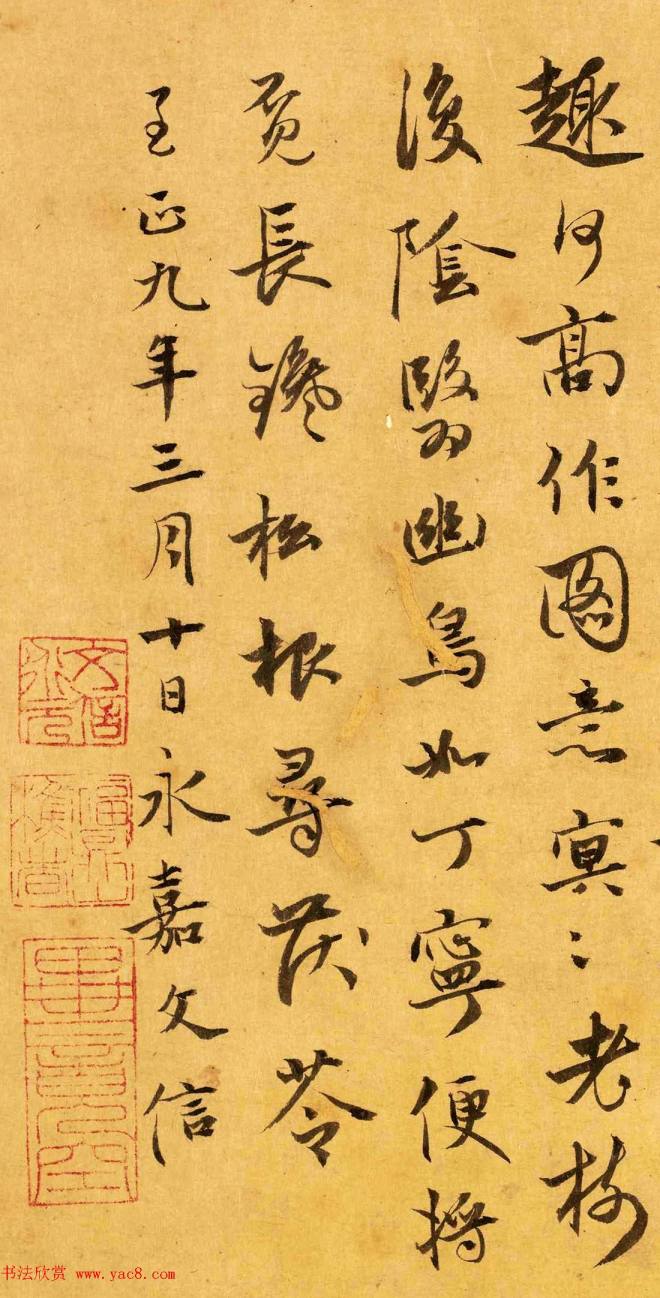 趣何高作圖意冥〻老樹
復陰翳幽鳥如丁寧便將
覓長鑱松根尋茯苓
至正九年三月十日永嘉文信
书法欣赏 www.yac8.com